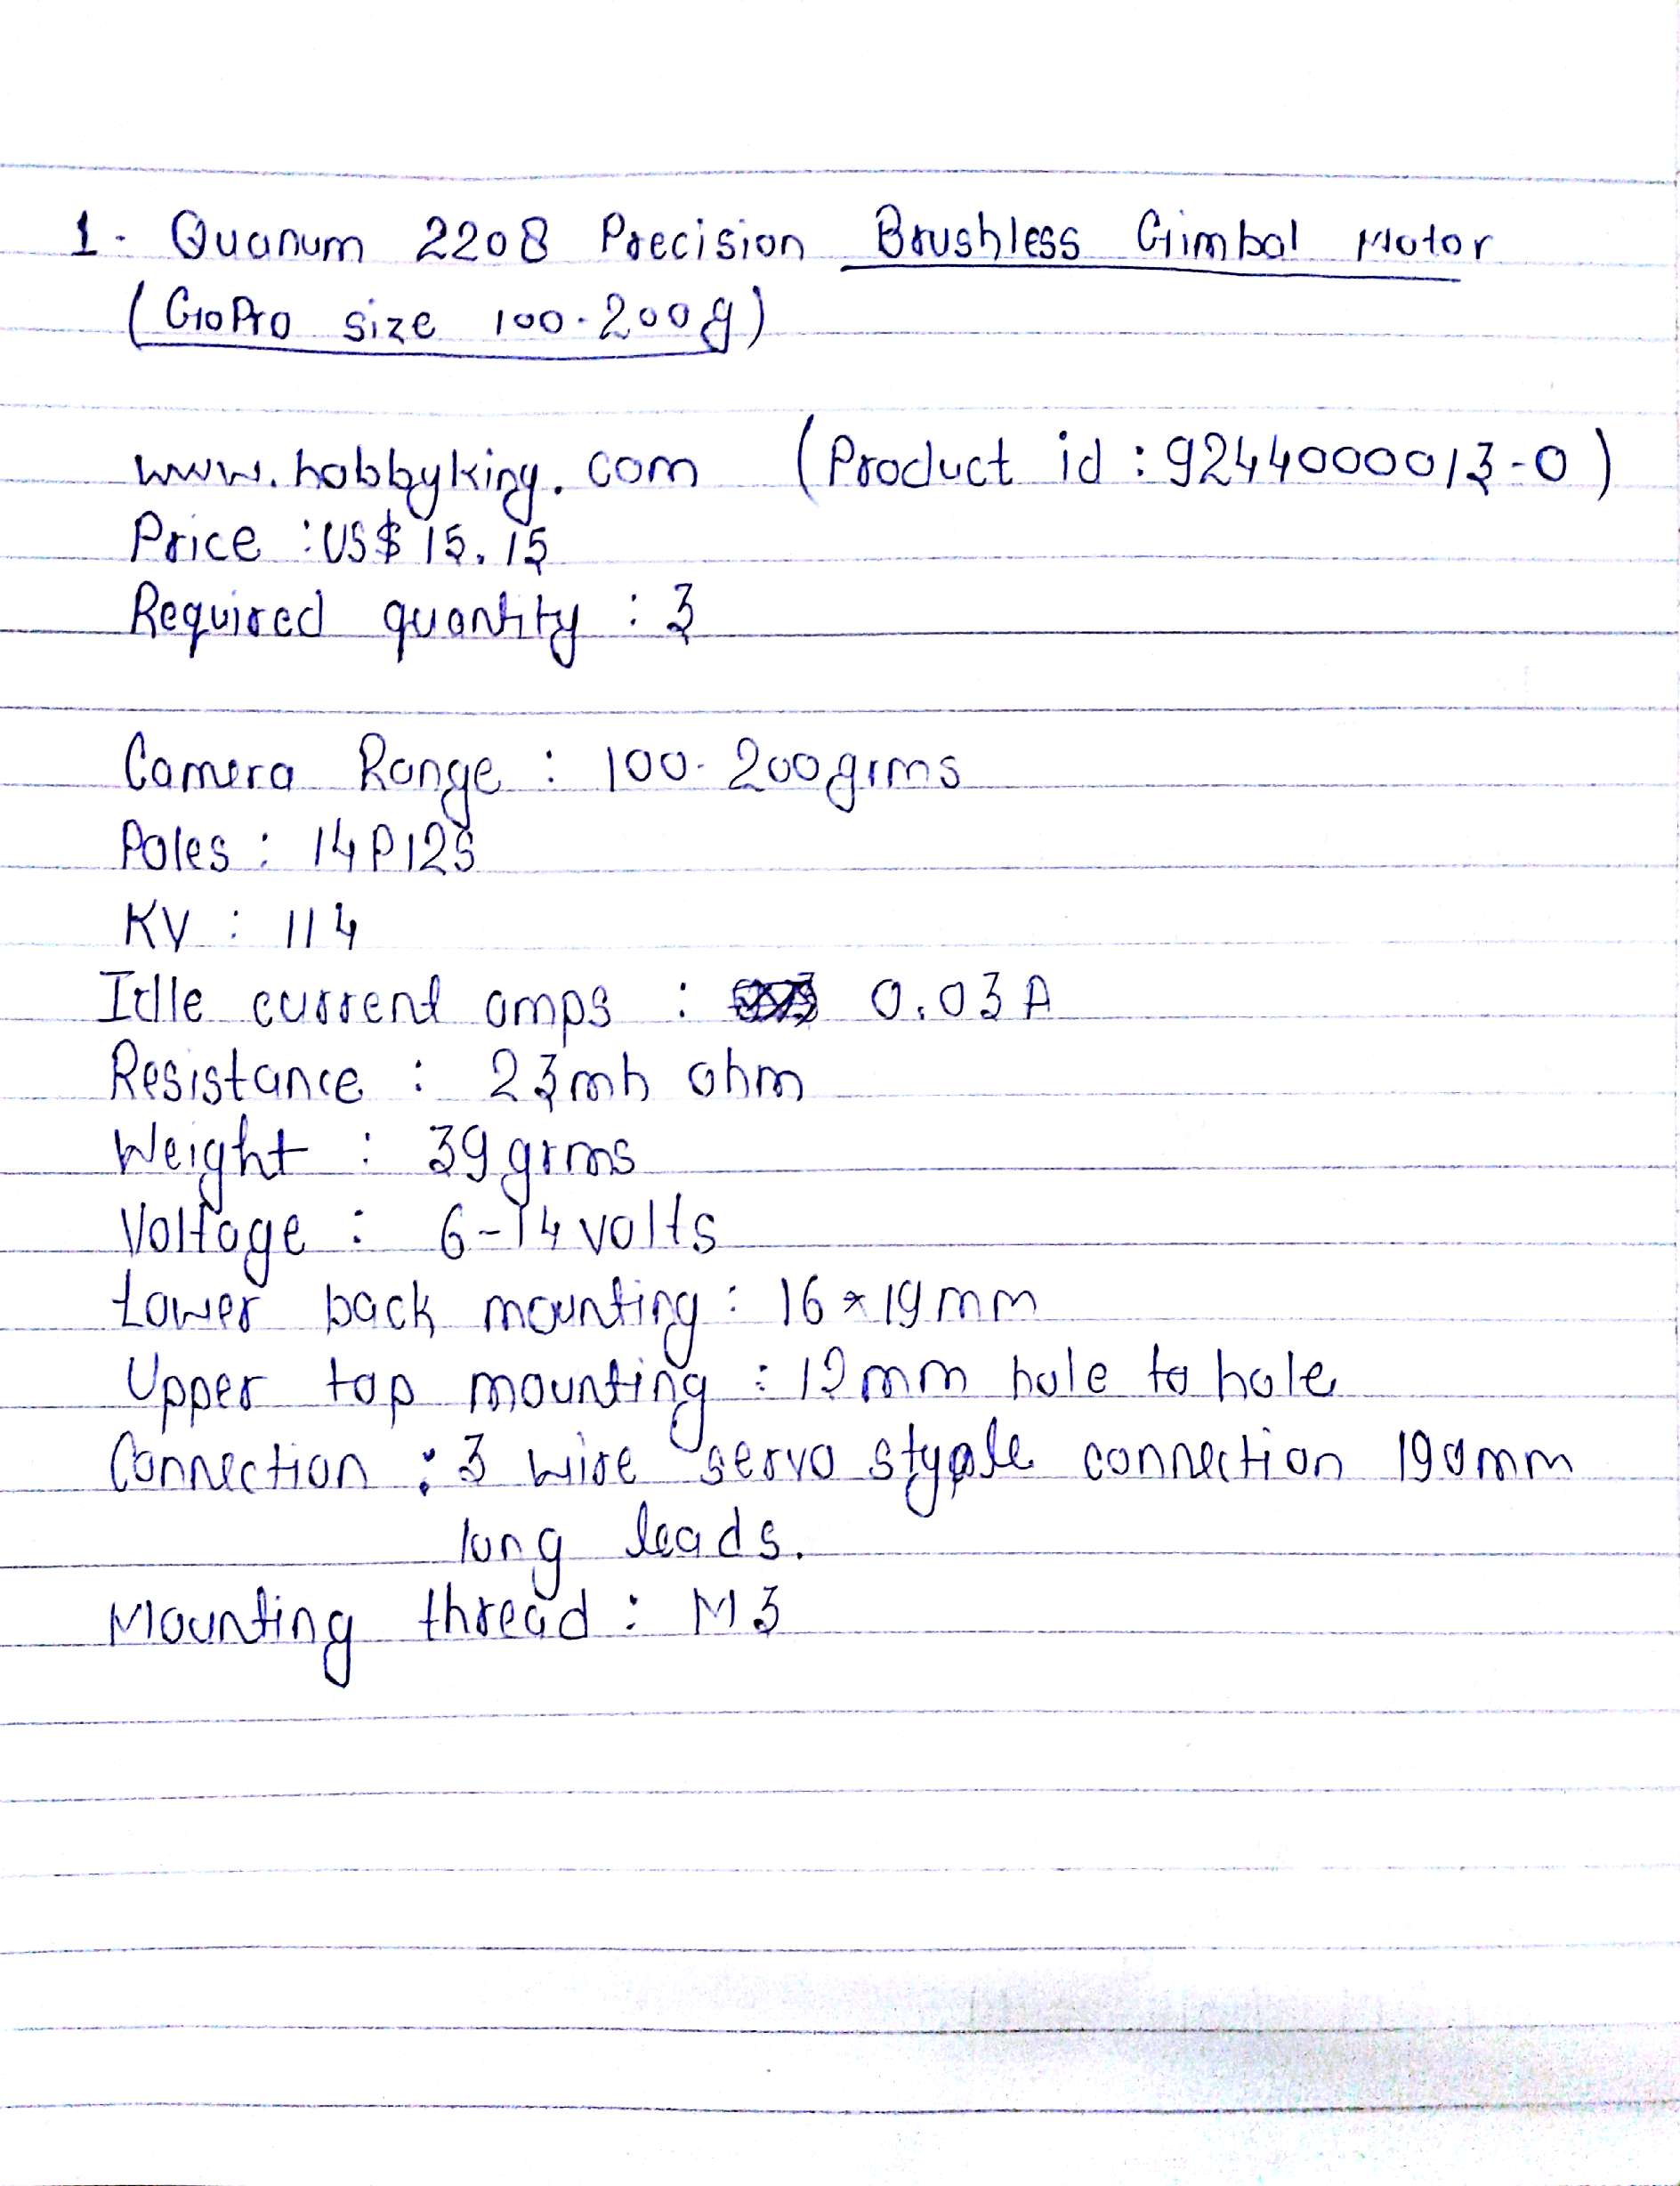 1. Quanum 2208 Precision Brushless Gimbal Motor
(GoPro size 100-200g)
www.hobbyking.com (Product id : 9244000013-0)
Price : US$ 15.15
Required quantity : 3
Camera Range : 100-200grms
Poles : 14P12S
KV : 114
Idle current amps : 0.03A
Resistance : 23mh ohm
Weight : 39grms
Voltage : 6-14volts
Lower back mounting : 16*19mm
Upper top mounting : 12mm hole to hole
Connection : 3 wire servo style connection 190mm
long leads.
Mounting thread : M3